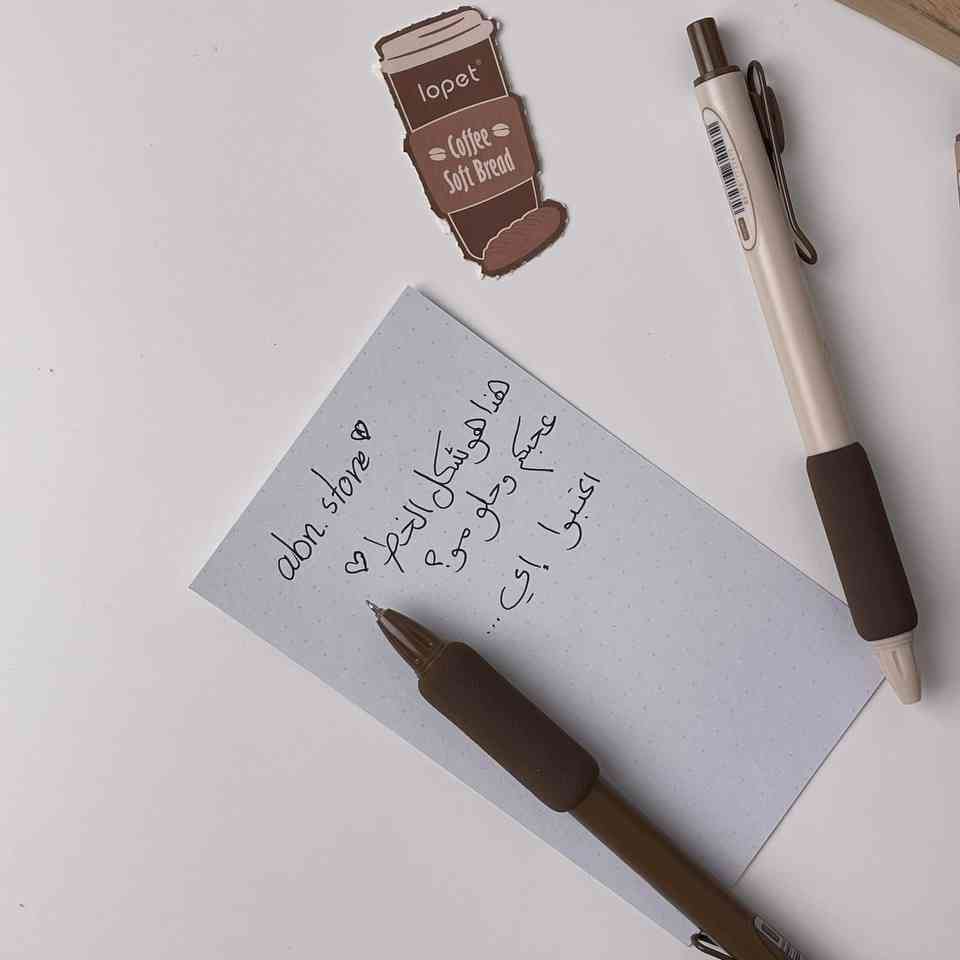 lopet
Coffee
Soft Bread
abn.store♡
هذا هو شكل الخط ♡
عجبكم وحلو مو؟
اكتبوا إي ...